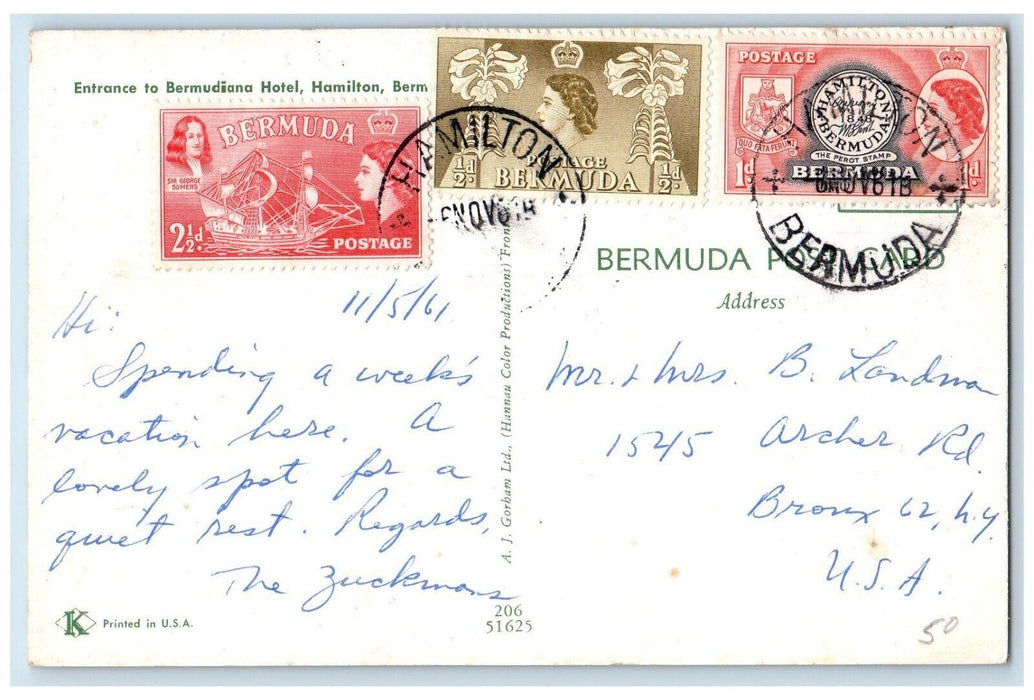 Entrance to Bermudiana Hotel, Hamilton, Berm
SIR GEORGE
SOMERS
BERMUDA
2½d.
POSTAGE
½d.
POSTAGE
BERMUDA
½d.
POSTAGE
QUO FATA FERUNT
HAMILTON
1848
BERMUDA
THE PEROT STAMP
1d
BERMUDA
1d.
HAMILTON
6 NOV 61
HAMILTON
6 NOV 61
BERMUDA
BERMUDA POST CARD
Address
11/5/61
Hi:
Spending a week's
vacation here. A
lovely spot for a
quiet rest. Regards,
The Zuckmans
Mr. & Mrs. B. Landman
1545 Archer Rd.
Bronx 62, N.Y.
U.S.A.
A. J. Gorham Ltd., (Hannau Color Productions) Fron
K
Printed in U.S.A.
206
51625
50